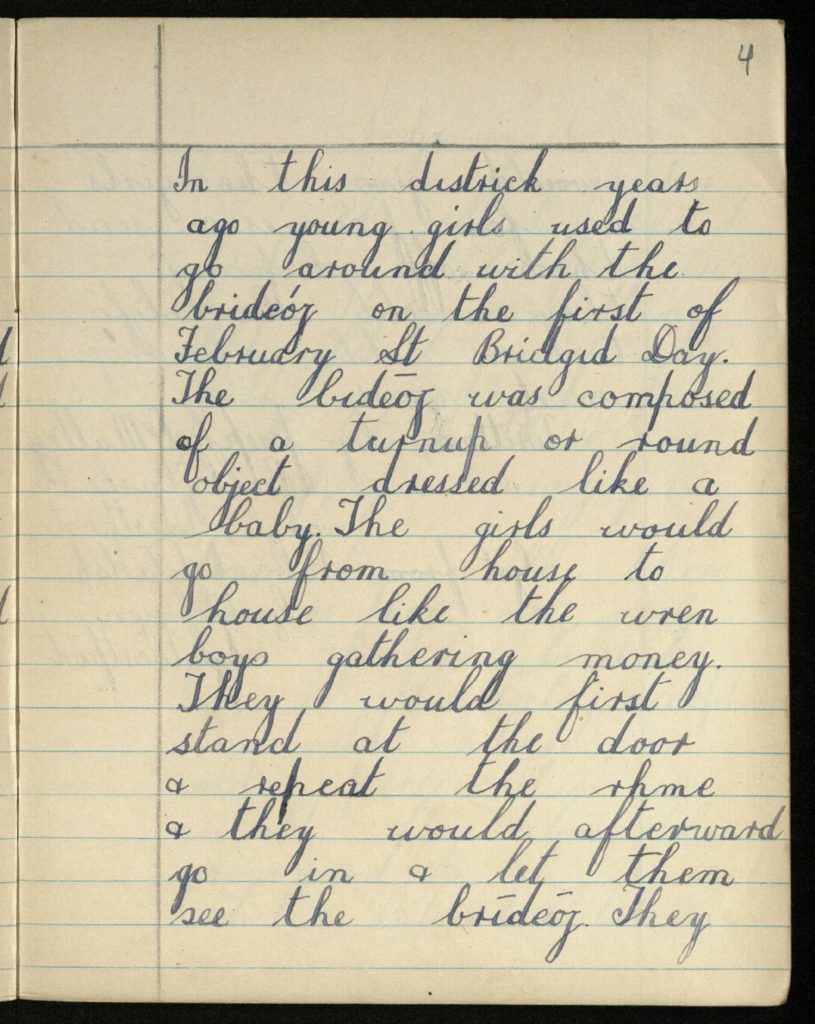 4
In this districk years
ago young girls used to
go around with the
brideóg on the first of
February St Bridgid Day.
The bideóg was composed
of a turnup or round
object dressed like a
baby. The girls would
go from house to
house like the wren
boys gathering money.
They would first
stand at the door
& repeat the rhme
& they would afterward
go in & let them
see the brídeóg. They